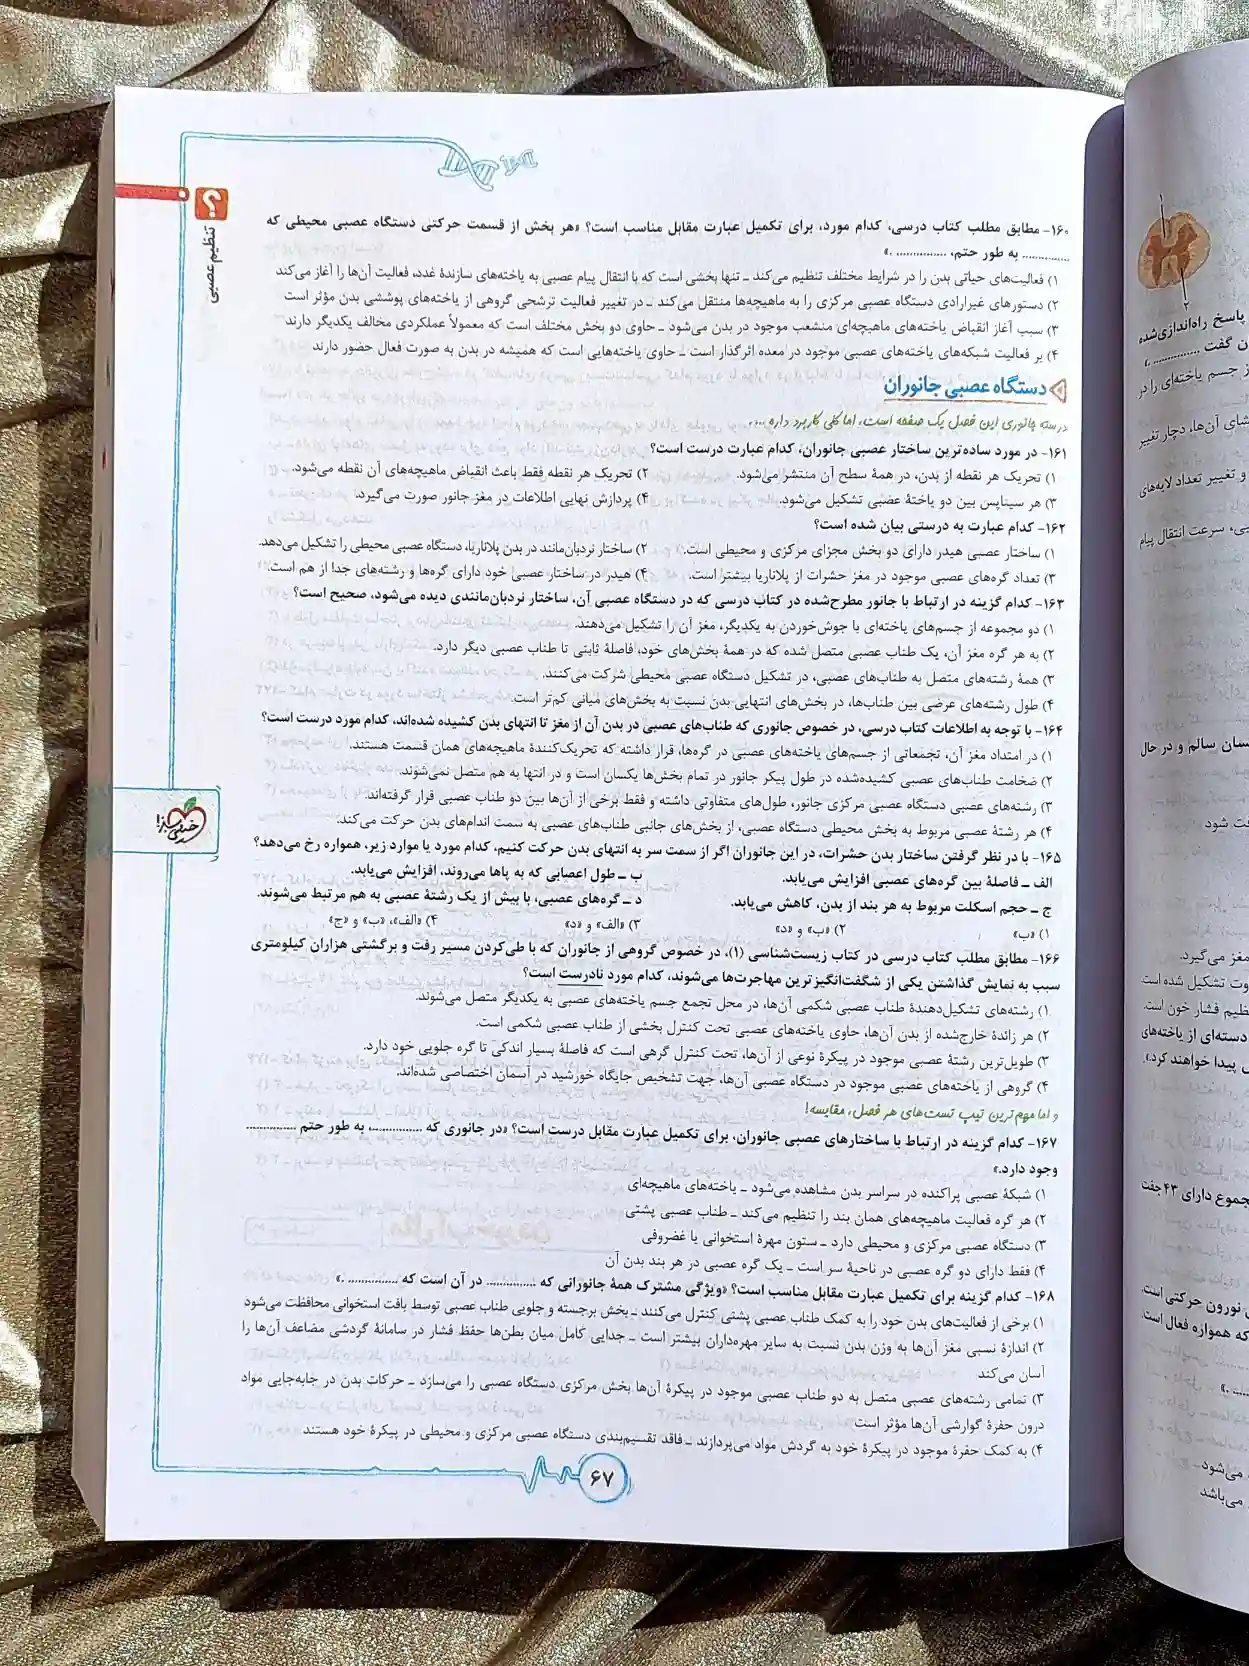 تنظیم عصبی
۱۶۰- مطابق مطلب کتاب درسی، کدام مورد، برای تکمیل عبارت مقابل مناسب است؟ «هر بخش از قسمت حرکتی دستگاه عصبی محیطی که
............... به طور حتم، ............... .»
۱) فعالیت‌های حیاتی بدن را در شرایط مختلف تنظیم می‌کند ـ تنها بخشی است که با انتقال پیام عصبی به یاخته‌های سازندهٔ غدد، فعالیت آن‌ها را آغاز می‌کند
۲) دستورهای غیرارادی دستگاه عصبی مرکزی را به ماهیچه‌ها منتقل می‌کند ـ در تغییر فعالیت ترشحی گروهی از یاخته‌های پوششی بدن مؤثر است
۳) سبب آغاز انقباض یاخته‌های ماهیچه‌ای منشعب موجود در بدن می‌شود ـ حاوی دو بخش مختلف است که معمولاً عملکردی مخالف یکدیگر دارند
۴) بر فعالیت شبکه‌های یاخته‌های عصبی موجود در معده اثرگذار است ـ حاوی یاخته‌هایی است که همیشه در بدن به صورت فعال حضور دارند
دستگاه عصبی جانوران
درسته جانوری این فصل یک صفحه است، اما کلی کاربرد داره ...
۱۶۱- در مورد ساده‌ترین ساختار عصبی جانوران، کدام عبارت درست است؟
۱) تحریک هر نقطه از بدن، در همهٔ سطح آن منتشر می‌شود. ۲) تحریک هر نقطه فقط باعث انقباض ماهیچه‌های آن نقطه می‌شود.
۳) هر سیناپس بین دو یاختهٔ عصبی تشکیل می‌شود. ۴) پردازش نهایی اطلاعات در مغز جانور صورت می‌گیرد.
۱۶۲- کدام عبارت به درستی بیان شده است؟
۱) ساختار عصبی هیدر دارای دو بخش مجزای مرکزی و محیطی است. ۲) ساختار نردبان‌مانند در بدن پلاناریا، دستگاه عصبی محیطی را تشکیل می‌دهد.
۳) تعداد گره‌های عصبی موجود در مغز حشرات از پلاناریا بیشتر است. ۴) هیدر در ساختار عصبی خود دارای گره‌ها و رشته‌های جدا از هم است.
۱۶۳- کدام گزینه در ارتباط با جانور مطرح‌شده در کتاب درسی که در دستگاه عصبی آن، ساختار نردبان‌مانندی دیده می‌شود، صحیح است؟
۱) دو مجموعه از جسم‌های یاخته‌ای با جوش‌خوردن به یکدیگر، مغز آن را تشکیل می‌دهند.
۲) به هر گره مغز آن، یک طناب عصبی متصل شده که در همهٔ بخش‌های خود، فاصلهٔ ثابتی تا طناب عصبی دیگر دارد.
۳) همهٔ رشته‌های متصل به طناب‌های عصبی، در تشکیل دستگاه عصبی محیطی شرکت می‌کنند.
۴) طول رشته‌های عرضی بین طناب‌ها، در بخش‌های انتهایی بدن نسبت به بخش‌های میانی کم‌تر است.
۱۶۴- با توجه به اطلاعات کتاب درسی، در خصوص جانوری که طناب‌های عصبی در بدن آن از مغز تا انتهای بدن کشیده شده‌اند، کدام مورد درست است؟
۱) در امتداد مغز آن، تجمعاتی از جسم‌های یاخته‌های عصبی در گره‌ها، قرار داشته که تحریک‌کنندهٔ ماهیچه‌های همان قسمت هستند.
۲) ضخامت طناب‌های عصبی کشیده‌شده در طول پیکر جانور در تمام بخش‌ها یکسان است و در انتها به هم متصل نمی‌شوند.
۳) رشته‌های عصبی دستگاه عصبی مرکزی جانور، طول‌های متفاوتی داشته و فقط برخی از آن‌ها بین دو طناب عصبی قرار گرفته‌اند.
۴) هر رشتهٔ عصبی مربوط به بخش محیطی دستگاه عصبی، از بخش‌های جانبی طناب‌های عصبی به سمت اندام‌های بدن حرکت می‌کند.
۱۶۵- با در نظر گرفتن ساختار بدن حشرات، در این جانوران اگر از سمت سر به انتهای بدن حرکت کنیم، کدام مورد یا موارد زیر، همواره رخ می‌دهد؟
الف ـ فاصلهٔ بین گره‌های عصبی افزایش می‌یابد. ب ـ طول اعصابی که به پاها می‌روند، افزایش می‌یابد.
ج ـ حجم اسکلت مربوط به هر بند از بدن، کاهش می‌یابد. د ـ گره‌های عصبی، با بیش از یک رشتهٔ عصبی به هم مرتبط می‌شوند.
۱) «ب» ۲) «ب» و «د» ۳) «الف» و «د» ۴) «الف»، «ب» و «ج»
۱۶۶- مطابق مطلب کتاب درسی در کتاب زیست‌شناسی (۱)، در خصوص گروهی از جانوران که با طی‌کردن مسیر رفت و برگشتی هزاران کیلومتری
سبب به نمایش گذاشتن یکی از شگفت‌انگیزترین مهاجرت‌ها می‌شوند، کدام مورد نادرست است؟
۱) رشته‌های تشکیل‌دهندهٔ طناب عصبی شکمی آن‌ها، در محل تجمع جسم یاخته‌های عصبی به یکدیگر متصل می‌شوند.
۲) هر زائدهٔ خارج‌شده از بدن آن‌ها، حاوی یاخته‌های عصبی تحت کنترل بخشی از طناب عصبی شکمی است.
۳) طویل‌ترین رشتهٔ عصبی موجود در پیکرهٔ نوعی از آن‌ها، تحت کنترل گرهی است که فاصلهٔ بسیار اندکی تا گره جلویی خود دارد.
۴) گروهی از یاخته‌های عصبی موجود در دستگاه عصبی آن‌ها، جهت تشخیص جایگاه خورشید در آسمان اختصاصی شده‌اند.
و اما مهم‌ترین تیپ تست‌های هر فصل، مقایسه!
۱۶۷- کدام گزینه در ارتباط با ساختارهای عصبی جانوران، برای تکمیل عبارت مقابل درست است؟ «در جانوری که ...............، به طور حتم ...............
وجود دارد.»
۱) شبکهٔ عصبی پراکنده در سراسر بدن مشاهده می‌شود ـ یاخته‌های ماهیچه‌ای
۲) هر گره فعالیت ماهیچه‌های همان بند را تنظیم می‌کند ـ طناب عصبی پشتی
۳) دستگاه عصبی مرکزی و محیطی دارد ـ ستون مهرهٔ استخوانی یا غضروفی
۴) فقط دارای دو گره عصبی در ناحیهٔ سر است ـ یک گره عصبی در هر بند بدن آن
۱۶۸- کدام گزینه برای تکمیل عبارت مقابل مناسب است؟ «ویژگی مشترک همهٔ جانورانی که ............... در آن است که ............... .»
۱) برخی از فعالیت‌های بدن خود را به کمک طناب عصبی پشتی کنترل می‌کنند ـ بخش برجسته و جلویی طناب عصبی توسط بافت استخوانی محافظت می‌شود
۲) اندازهٔ نسبی مغز آن‌ها به وزن بدن نسبت به سایر مهره‌داران بیشتر است ـ جدایی کامل میان بطن‌ها حفظ فشار در سامانهٔ گردشی مضاعف آن‌ها را
آسان می‌کند
۳) تمامی رشته‌های عصبی متصل به دو طناب عصبی موجود در پیکرهٔ آن‌ها بخش مرکزی دستگاه عصبی را می‌سازد ـ حرکات بدن در جابه‌جایی مواد
درون حفرهٔ گوارشی آن‌ها مؤثر است
۴) به کمک حفرهٔ موجود در پیکرهٔ خود به گردش مواد می‌پردازند ـ فاقد تقسیم‌بندی دستگاه عصبی مرکزی و محیطی در پیکرهٔ خود هستند
۶۷
پاسخ راه‌اندازی‌شده
ن گفت ............... .»
ز جسم یاخته‌ای را در
شای آن‌ها، دچار تغییر
و تغییر تعداد لایه‌های
سرعت انتقال پیام
سان سالم و در حال
فت شود
مغز می‌گیرد.
وت تشکیل شده است
نظیم فشار خون است.
دسته‌ای از یاخته‌های
پیدا خواهند کرد.»
جموع دارای ۴۳ جفت
نورون حرکتی است،
که همواره فعال است.
می‌شود
می‌باشد